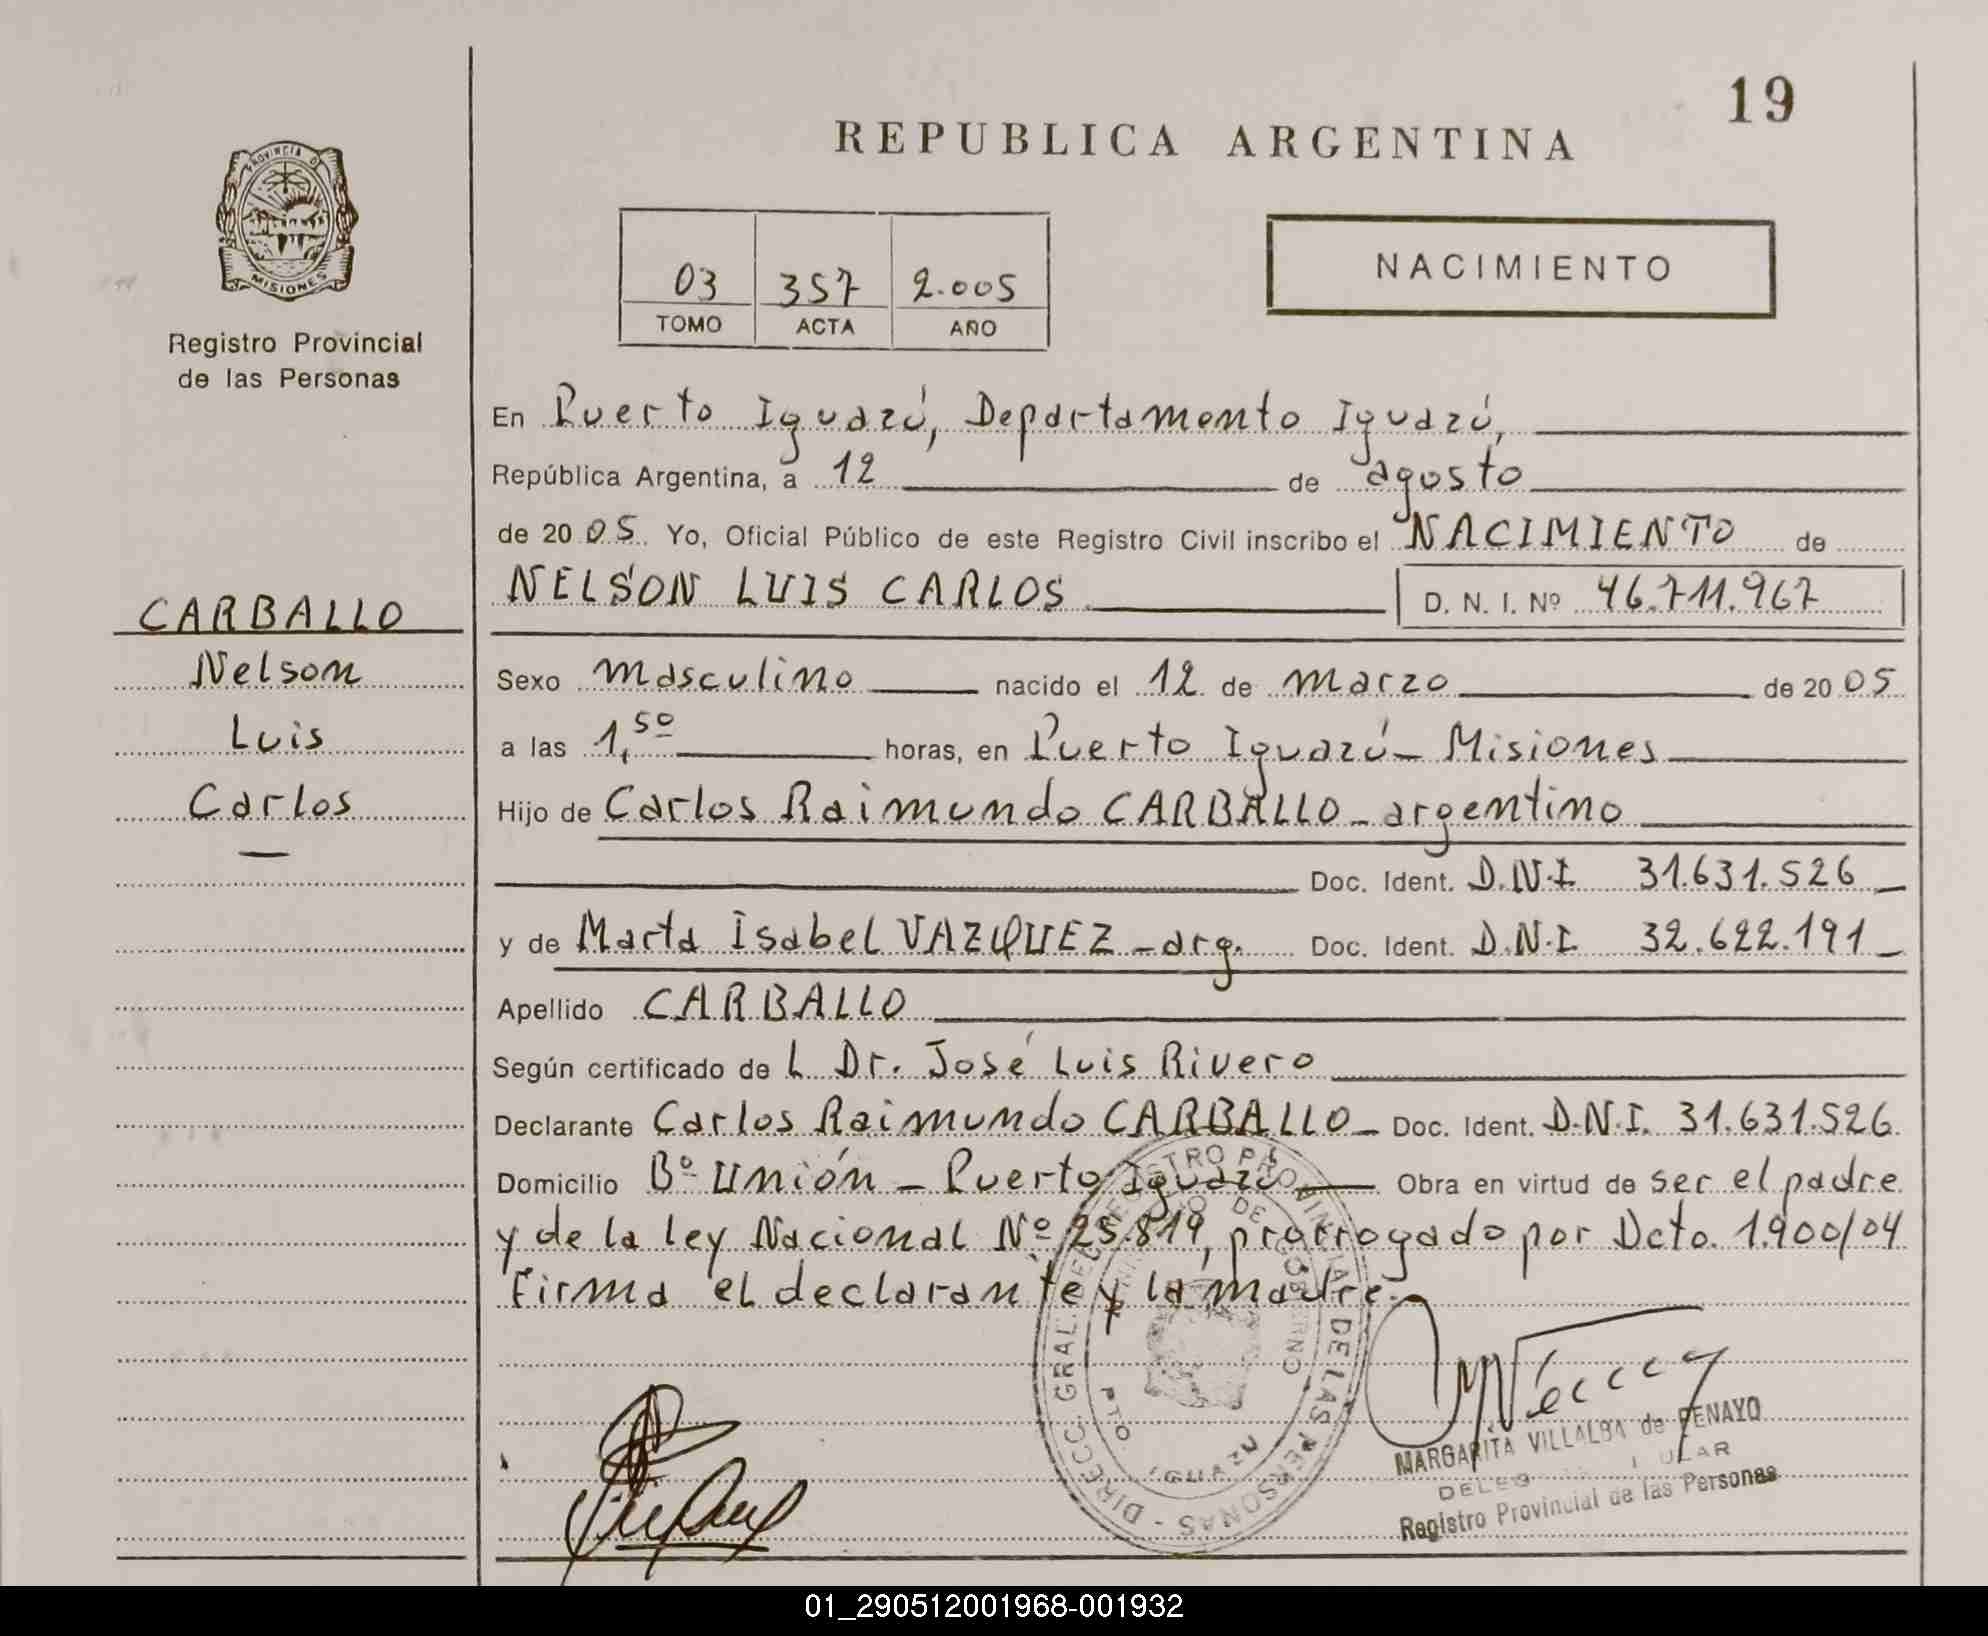 19
REPUBLICA ARGENTINA
PROVINCIA D
MISIONES
Registro Provincial
de las Personas
03 357 2.005
TOMO ACTA AÑO
NACIMIENTO
En Puerto Iguazú, Departamento Iguazú,
República Argentina, a 12 de agosto
de 2005. Yo, Oficial Público de este Registro Civil inscribo el NACIMIENTO de
NELSON LUIS CARLOS D. N. I. Nº 46.711.967
CARBALLO
Nelson
Luis
Carlos
Sexo masculino nacido el 12 de marzo de 2005
a las 1,50 horas, en Puerto Iguazú - Misiones
Hijo de Carlos Raimundo CARBALLO - argentino
Doc. Ident. D.N.I 31.631.526
y de Marta Isabel VAZQUEZ - arg. Doc. Ident. D.N.I. 32.622.191
Apellido CARBALLO
Según certificado de L Dr. José Luis Rivero
Declarante Carlos Raimundo CARBALLO - Doc. Ident. D.N.I. 31.631.526
Domicilio Bº Unión - Puerto Iguazú Obra en virtud de ser el padre
y de la ley Nacional Nº 25.819, prorrogado por Dcto. 1.900/04
Firma el declarante y la madre.
DIRECC. GRAL. DEL REGISTRO PROVINCIAL DE LAS PERSONAS -
DE GOBIERNO
PTO. IGUAZU
MARGARITA VILLALBA de PENAYO
Registro Provincial de las Personas
01_290512001968-001932